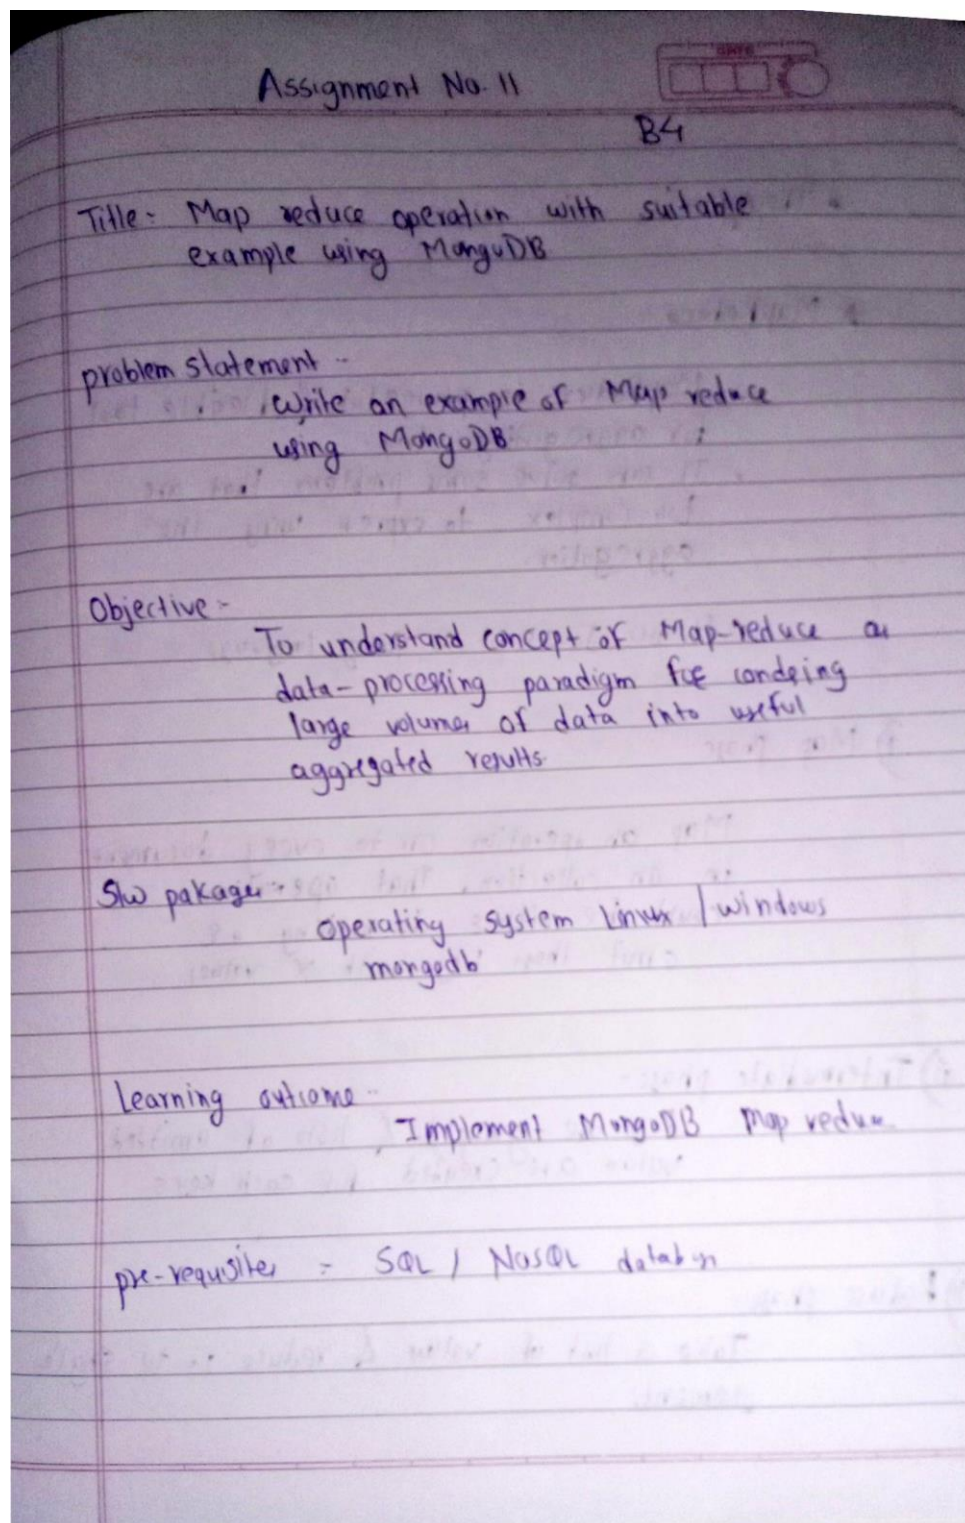 DATE
Assignment No. 11
B4
Title:- Map reduce operation with suitable
example using MongoDB
problem statement :-
Write an example of Map reduce
using MongoDB
Objective :-
To understand concept of Map-reduce as
data-processing paradigm for condeing
large volumes of data into useful
aggregated results.
S/w pakages :-
Operating system Linux / windows
mongodb
Learning outcome :-
Implement MongoDB Map reduce
pre-requisites :- SQL / NoSQL